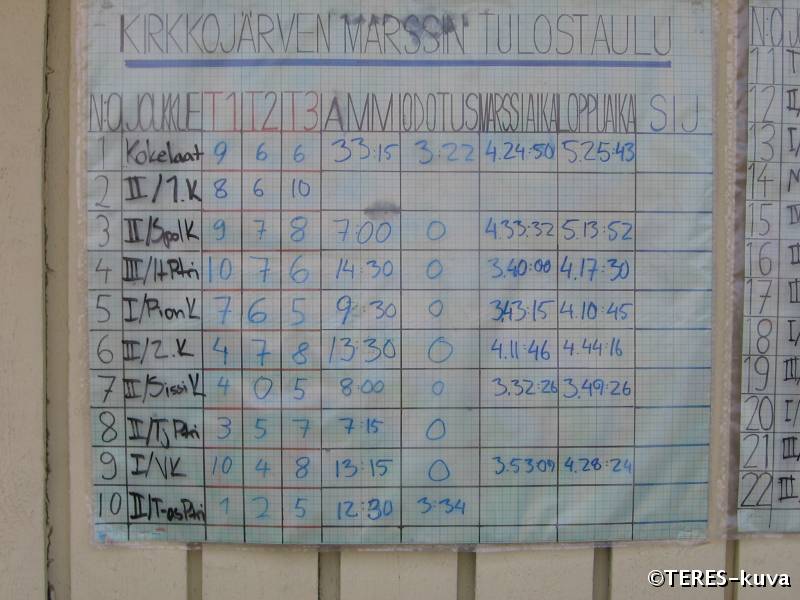 KIRKKOJÄRVEN MARSSIN TULOSTAULU
N:O JOUKKUE T1 T2 T3 AMM ODOTUS MARSSIAIKA LOPPUAIKA SIJ
1 Kokelaat 9 6 6 33:15 3:22 4.24:50 5.25:43
2 II/1.K 8 6 10
3 II/SpolK 9 7 8 7:00 0 4.33:32 5.13:52
4 III/ItPtri 10 7 6 14:30 0 3.40:00 4.17:30
5 I/PionK 7 6 5 9:30 0 3.43:15 4.10:45
6 II/2.K 4 7 8 13:30 0 4.11:46 4.44:16
7 II/SissiK 4 0 5 8:00 0 3.32:26 3.49:26
8 II/TjPtri 3 5 7 7:15 0
9 I/VK 10 4 8 13:15 0 3.5309 4.28:24
10 II/T-osPtri 1 2 5 12:30 3:34
N:O
11
12
13
14
15
16
17
18
19
20
21
22
©TERES-kuva